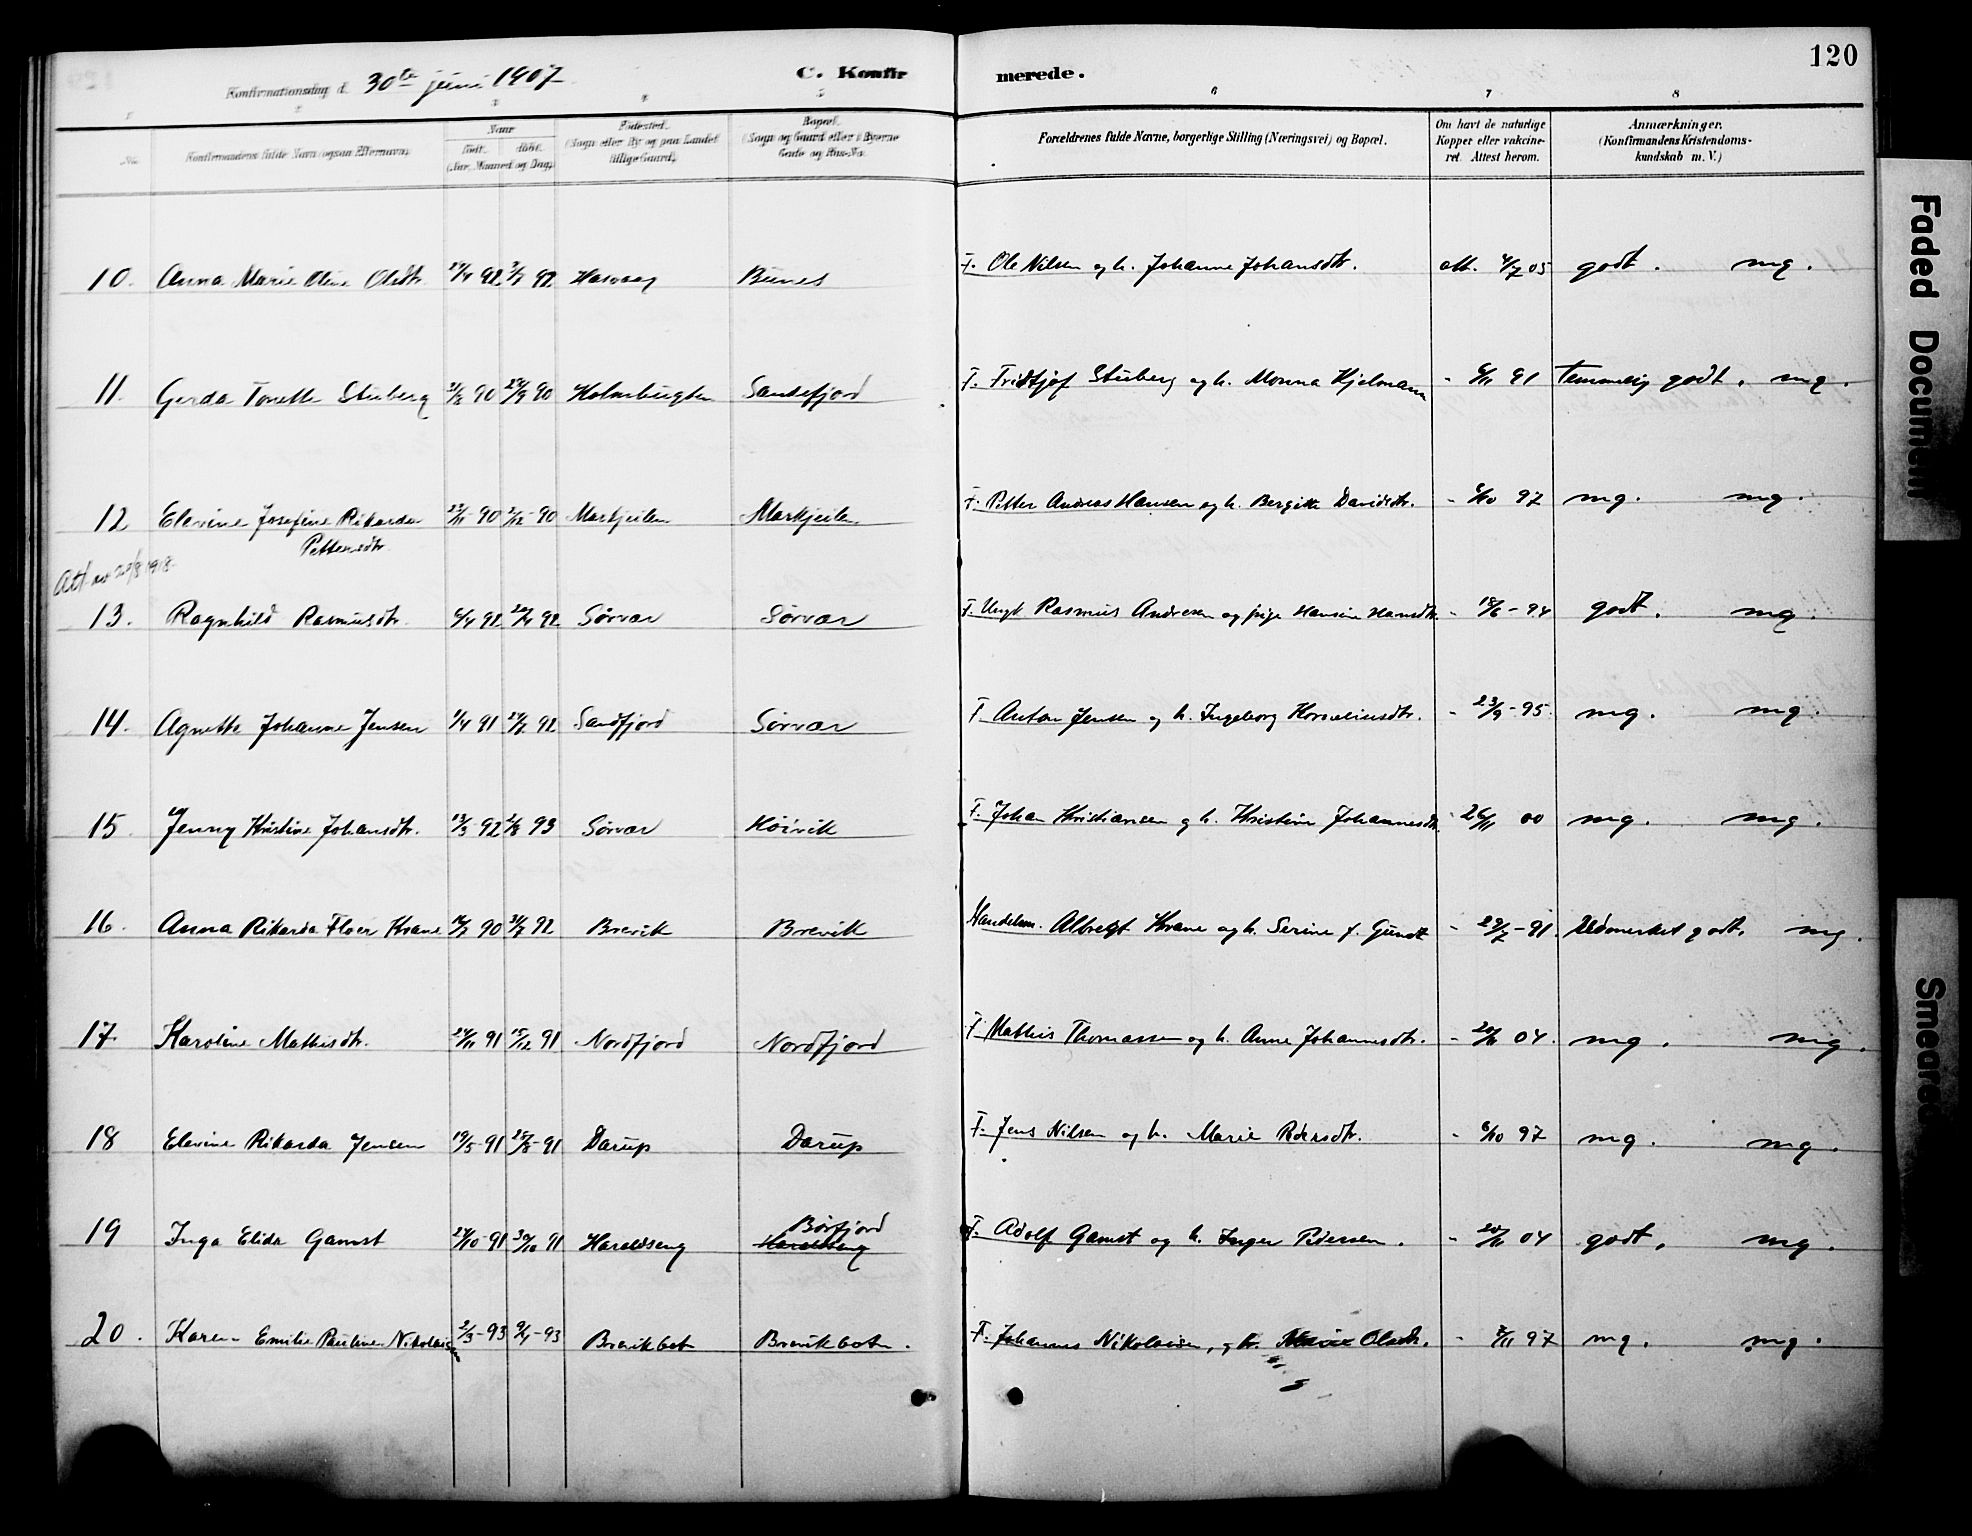 120
Konfirmationsdag d. 30te juni 1907
C. Konfirmerede.
1 2 3 4 5 6 7 8
No. Konfirmandens fulde Navn (ogsaa Efternavn). Naar Født. døbt. (Aar, Maaned og Dag) Fødested. (Sogn eller By og paa Landet tillige Gaard). Bopæl. (Sogn og Gaard eller i Byerne Gade og Hus-No. Forældrenes fulde Navne, borgerlige Stilling (Næringsvei) og Bopæl. Om havt de naturlige Kopper eller vakcineret. Attest herom. Anmærkninger. (Konfirmandens Kristendomskundskab m. V.)
10. Anna Marie Oline Olsdtr. 92 92 Hasvaag Bunes F. Ole Nilsen og h. Johanne Johansdtr. att. 4/7 05 godt. mg.
11. Gerda Tonette Stuberg 90 90 Holmbugten Sandefjord F. Fridtjof Stuberg og h. Monna Hjelmann - 6/11 91 Temmelig godt. mg.
12 Elevine Josefine Rikarda Pettersdtr. 23/11 90 2/12 - 90 Markeilen Markeilen F. Petter Andreas Hansen og h. Bergitte Davidsdtr. - 6/10 97 mg. mg.
Att. 1918.
13. Ragnhild Rasmusdtr. 6/4 92 92 Sørvær Sørvær F. Ungk. Rasmus Andresen og pige Hansine Hansdtr. - 18/6 - 94 godt. mg.
14. Agnette Johanne Jensen 1/4 91 92 Sandfjord Sørvær F. Anton Jensen og h. Ingeborg Korneliusdtr. - 23/9 - 95. mg. mg.
15. Jenny Kristine Johansdtr. 13/3 92 93 Sørvær Høivik F. Johan Kristiansen og h. Kristine Johannesdtr. - 26/11 00 mg. mg.
16. Anna Rikarda Floer Krane 90 92 Brevik Brevik Handelsm. Albregt Krane og h. Serine f. Gundt - 29/7 - 91. Udmerket godt. mg.
17. Karoline Mathisdtr. 24/11 91 15/12 91 Nordfjord Nordfjord F. Mathis Thomassen og h. Anne Johannesdtr. - 20/11 04. mg. mg.
18 Elevine Rikarda Jensen 19/5 - 91 25/8 - 91 Darup Darup F. Jens Nilsen og h. Marie Pedersdtr. - 6/10 97 mg. mg.
19 Inga Elida Gamst 27/10 - 91 30/10 91 Hareldseng Børfjord Hareldseng F. Adolf Gamst og h. Inger Piersen. - 20/11 04 godt. mg.
20. Karen Emilie Pauline Nikolaisen 2/3 - 93 9/4 - 93 Brevikbot Brevikbotn. F. Johannes Nikolaisen, og h. Marie Olsdtr. - 7/11 97 mg. mg.
Faded Document
Smeared